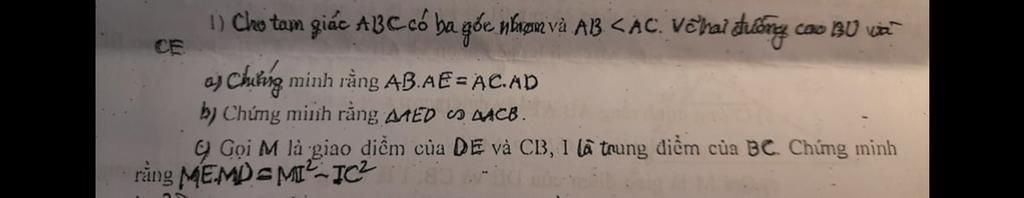 1) Cho tam giác ABC có ba góc nhọn và AB < AC. Vẽ hai đường cao BD và
CE
a) Chứng minh rằng AB.AE = AC.AD
b) Chứng minh rằng ΔAED ∽ ΔACB.
c) Gọi M là giao điểm của DE và CB, I là trung điểm của BC. Chứng minh
rằng ME.MD = MI² - IC²